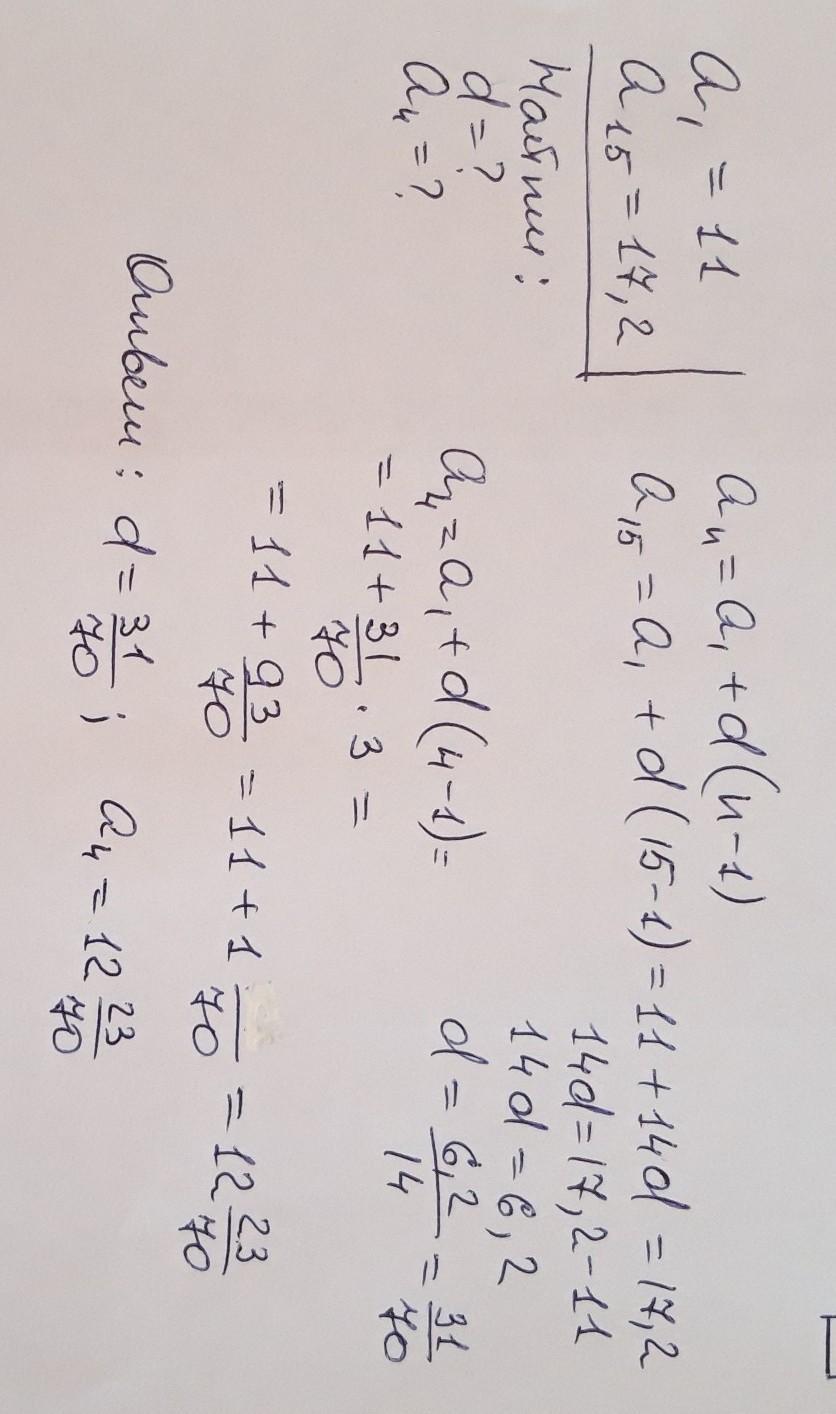 a₁ = 11
a₁₅ = 17,2
Найти:
d = ?
a₄ = ?
aₙ = a₁ + d(n-1)
a₁₅ = a₁ + d(15-1) = 11 + 14d = 17,2
14d = 17,2 - 11
14d = 6,2
d = 6,2/14 = 31/70
a₄ = a₁ + d(4-1) =
= 11 + 31/70 · 3 =
= 11 + 93/70 = 11 + 1 /70 = 12 23/70
Ответ: d = 31/70; a₄ = 12 23/70